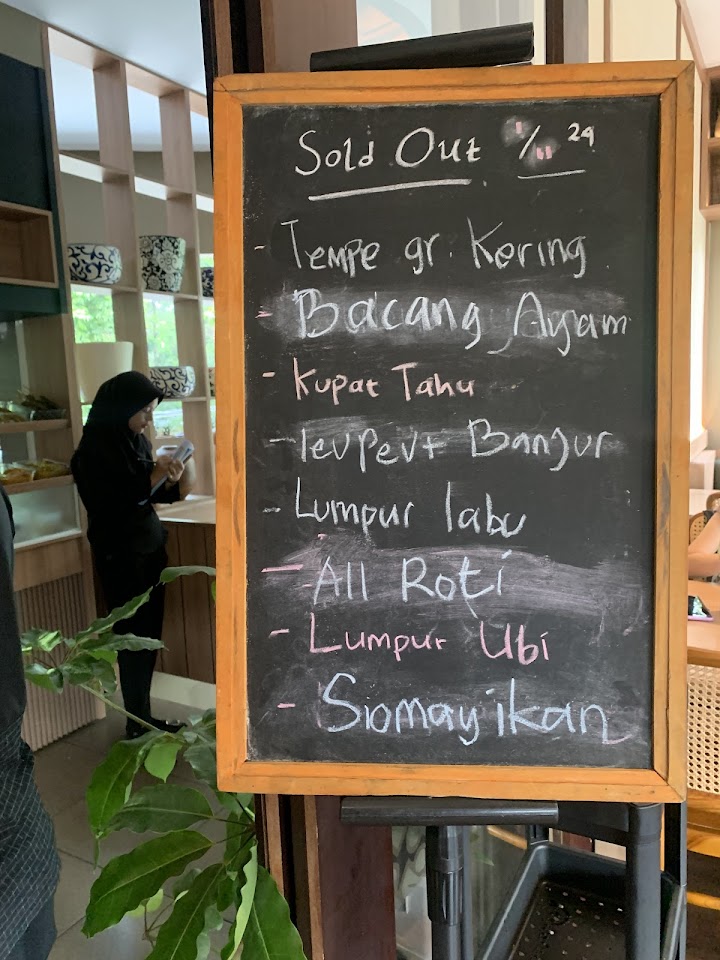 Sold Out 1/11 24
- Tempe gr. Kering
- Bacang Ayam
- Kupat Tahu
- Leupeut Banjur
- Lumpur labu
- All Roti
- Lumpur Ubi
- Siomay ikan